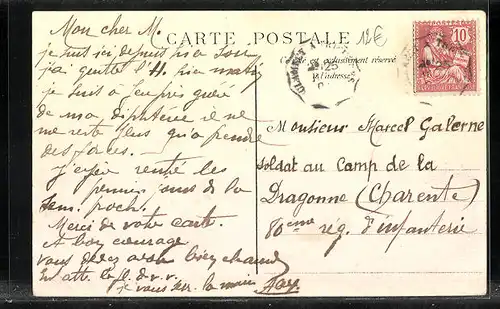 CARTE POSTALE
12€
Ce côté est exclusivement réservé
à l'adresse
10
Mon cher M.
je suis ici depuis hier soir
j'ai quitté l'H. hier matin
je suis à peu près guéri
de ma diphtérie il ne
me reste plus qu'à prendre
des forces.
j'espère rentré les
premiers jours de la
sem. proch.
Merci de votre carte.
A bon courage
vous devez avoir bien chaud
En att. le p. de v. v.
je vous ser. la main
Monsieur Marcel Galerne
Soldat au Camp de la
Bragonne (Charente)
80ème rég. d'infanterie